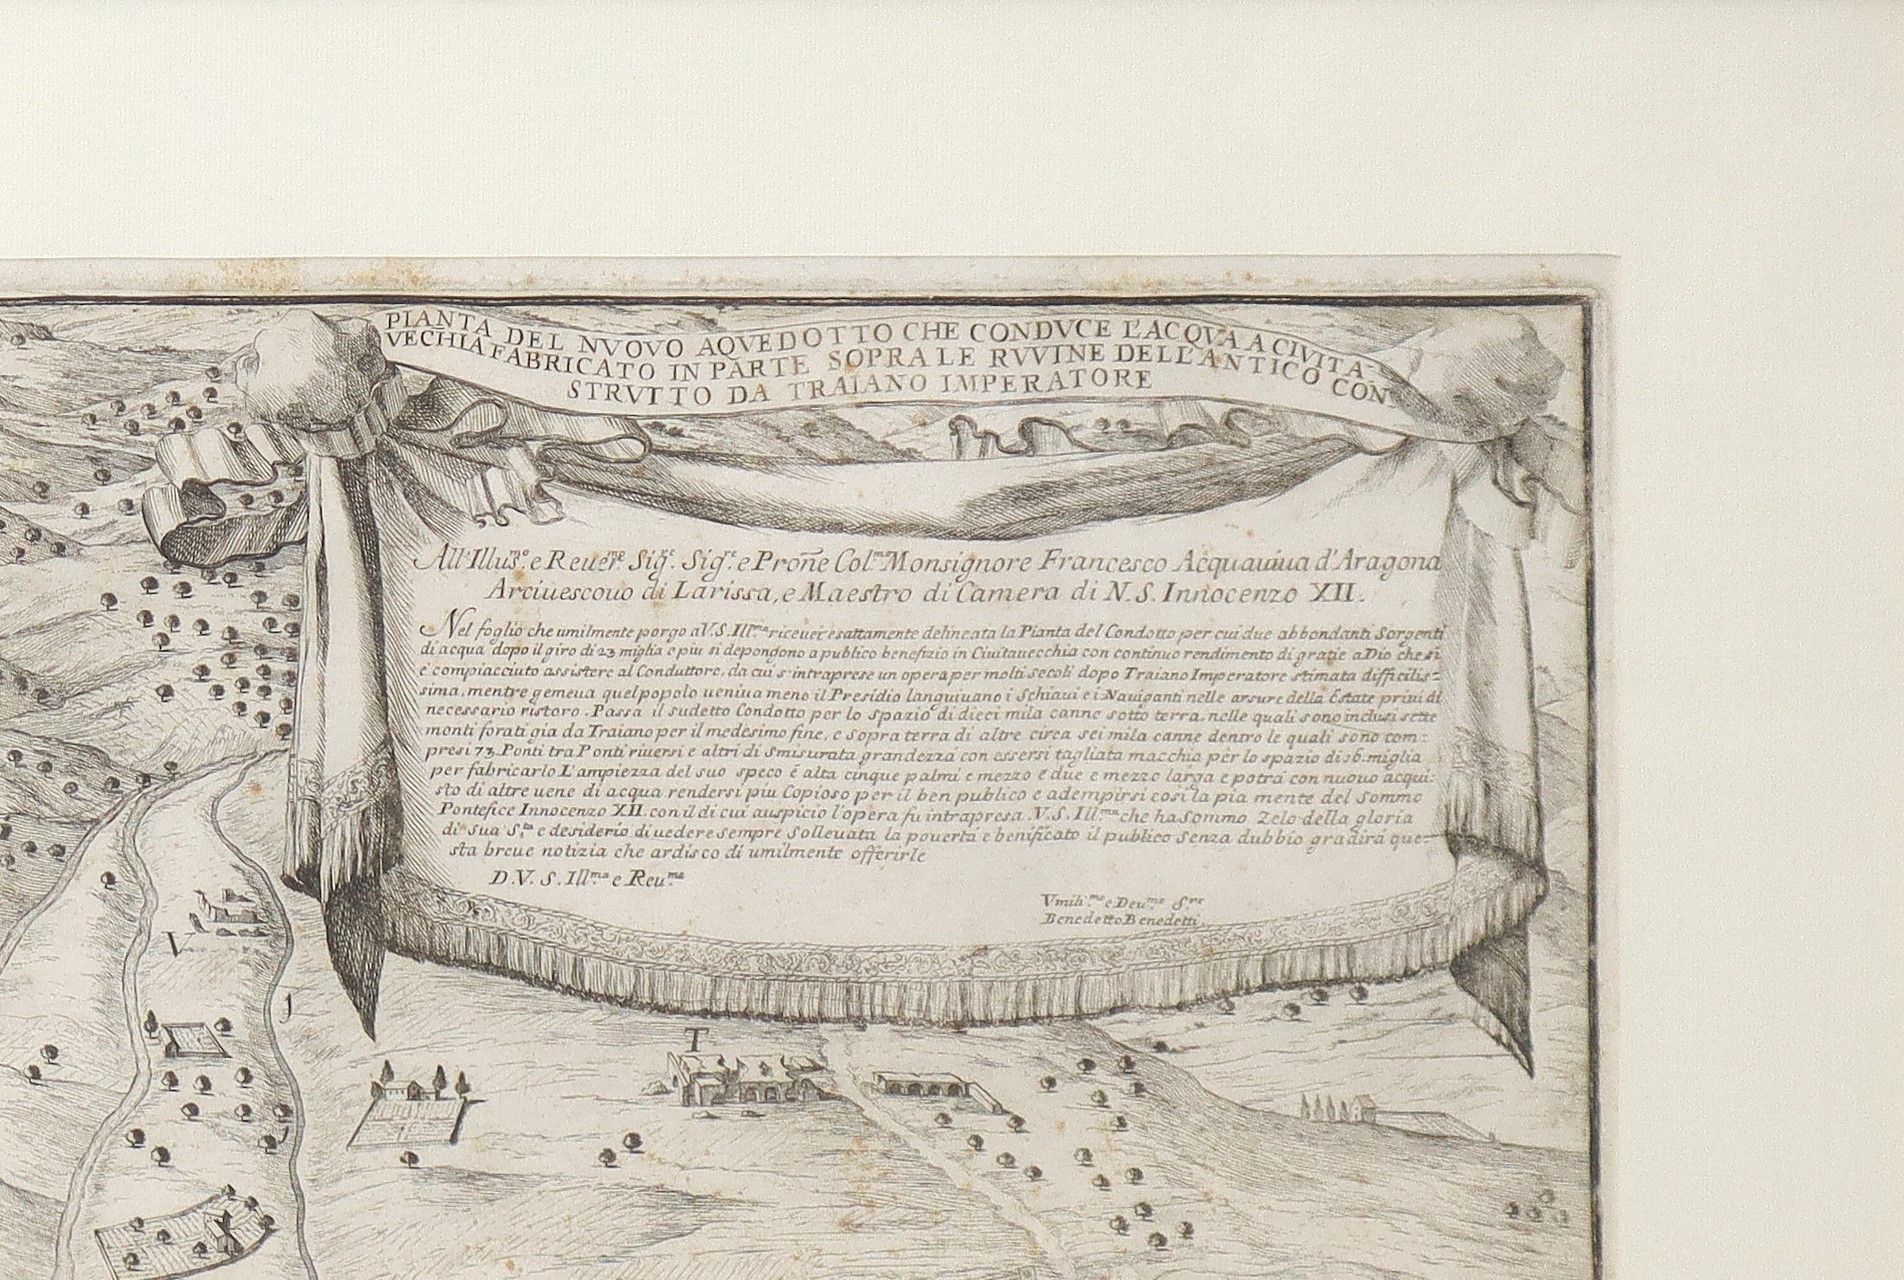 PIANTA DEL NVOVO AQVEDOTTO CHE CONDVCE L'ACQVA A CIVITA-
VECHIA FABRICATO IN PARTE SOPRA LE RVVINE DELL'ANTICO CON
STRVTTO DA TRAIANO IMPERATORE
All'Illus.mo e Reuer.me Sig.re Sig.re e Prone Col.mo Monsignore Francesco Acquauiua d'Aragona
Arciuescouo di Larissa, e Maestro di Camera di N. S. Innocenzo XII.
Nel foglio che umilmente porgo a V. S. Ill.ma riceuer esattamente delineata la Pianta del Condotto per cui due abbondanti Sorgenti
di acqua dopo il giro di 23 miglia e piu si depongono a publico benefizio in Ciuitauecchia con continuo rendimento di gratie a Dio che si
è compiacciuto assistere al Conduttore, da cui s'intraprese un opera per molti secoli dopo Traiano Imperatore stimata difficilis-
sima, mentre gemeua quel popolo ueniua meno il Presidio languiuano i Schiaui e i Nauiganti nelle arsure della Estate priui di
necessario ristoro. Passa il sudetto Condotto per lo spazio di dieci mila canne sotto terra, nelle quali sono inclusi sette
monti forati gia da Traiano per il medesimo fine, e sopra terra di altre circa sei mila canne dentro le quali sono com-
presi 73 Ponti tra Ponti riuersi e altri di smisurata grandezza con essersi tagliata macchia per lo spazio di 16 miglia
per fabricarlo L'ampiezza del suo speco é alta cinque palmi e mezzo e due e mezzo larga e potrá con nuouo acqui-
sto di altre uene di acqua rendersi piu Copioso per il ben publico e adempirsi cosi la pia mente del Sommo
Pontefice Innocenzo XII. con il di cui auspicio l'opera fu intrapresa. V. S. Ill.ma che ha Sommo Zelo della gloria
di sua S.ta e desiderio di uedere sempre solleuata la pouertá e benificato il publico senza dubbio gradirá que-
sta breue notizia che ardisco di umilmente offerirle
D. V. S. Ill.ma e Reu.ma
Vmili.mo e Deu.mo S.re
Benedetto Benedetti.
V
J
T